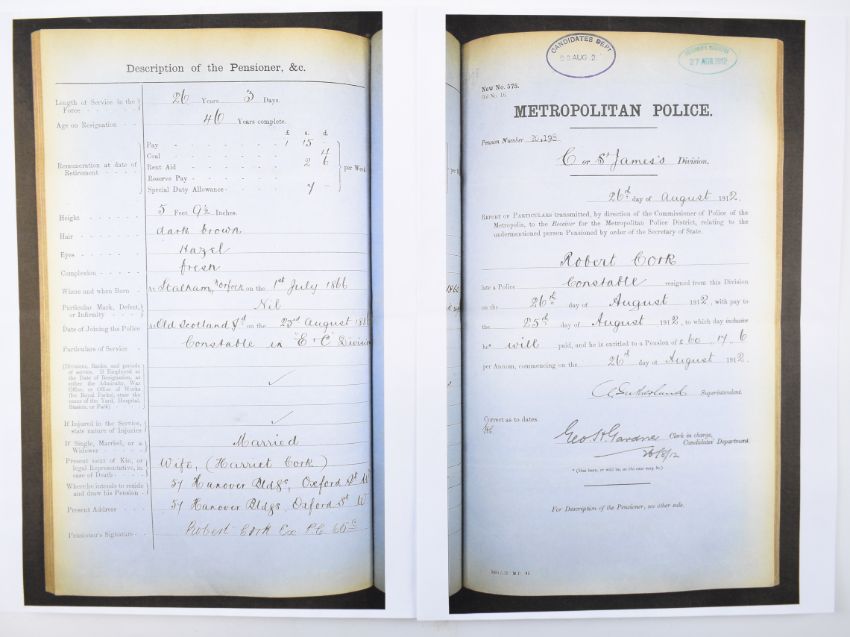 Description of the Pensioner, &c.
Length of Service in the Force 26 Years 3 Days.
Age on Resignation 46 Years complete.
£ s. d.
Pay 1 15
Coal 4
Rent Aid 2 6
Reserve Pay
Special Duty Allowance 7 -
Remuneration at date of Retirement per Week
Height 5 Feet 9½ Inches.
Hair dark brown
Eyes Hazel
Complexion fresh
Where and when Born At Stalham, Norfolk on the 1st July 1866
Particular Mark, Defect, or Infirmity Nil
Date of Joining the Police At Old Scotland Yd on the 23rd August 18
Particulars of Service Constable in "E + C" Division
(Divisions, Ranks, and periods of service. If Employed at the Date of Resignation, at either the Admiralty, War Office, or Office of Works (the Royal Parks), state the name of the Yard, Hospital, Station, or Park)
If Injured in the Service, state nature of Injuries
If Single, Married, or a Widower Married
Present next of Kin, or legal Representative, in case of Death Wife, (Harriet Cork)
Whereat intends to reside and draw his Pension 31 Hanover Bldgs, Oxford St W
Present Address 31 Hanover Bldgs Oxford St W
Pensioner's Signature Robert Cork Ex P.C.
CANDIDATES DEPT
AUG 2.
27 AUG 1912
New No. 578.
METROPOLITAN POLICE.
Pension Number
C or St James's Division.
26th day of August 1912.
REPORT OF PARTICULARS transmitted, by direction of the Commissioner of Police of the
Metropolis, to the Receiver for the Metropolitan Police District, relating to the
undermentioned person Pensioned by order of the Secretary of State.
Robert Cork
late a Police Constable resigned from this Division
on the 26th day of August 1912, with pay to
the 25th day of August 1912, to which day inclusive
he* will paid, and he is entitled to a Pension of £ 60 17 6
per Annum, commencing on the 26th day of August 1912.
Superintendent.
Correct as to dates.
Geo H Gardner Clerk in charge,
Candidates' Department
* (Has been, or will be, as the case may be.)
For Description of the Pensioner, see other side.